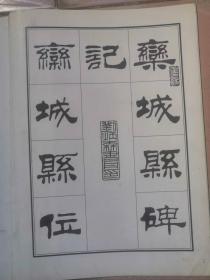 欒城縣碑
記
欒城縣位